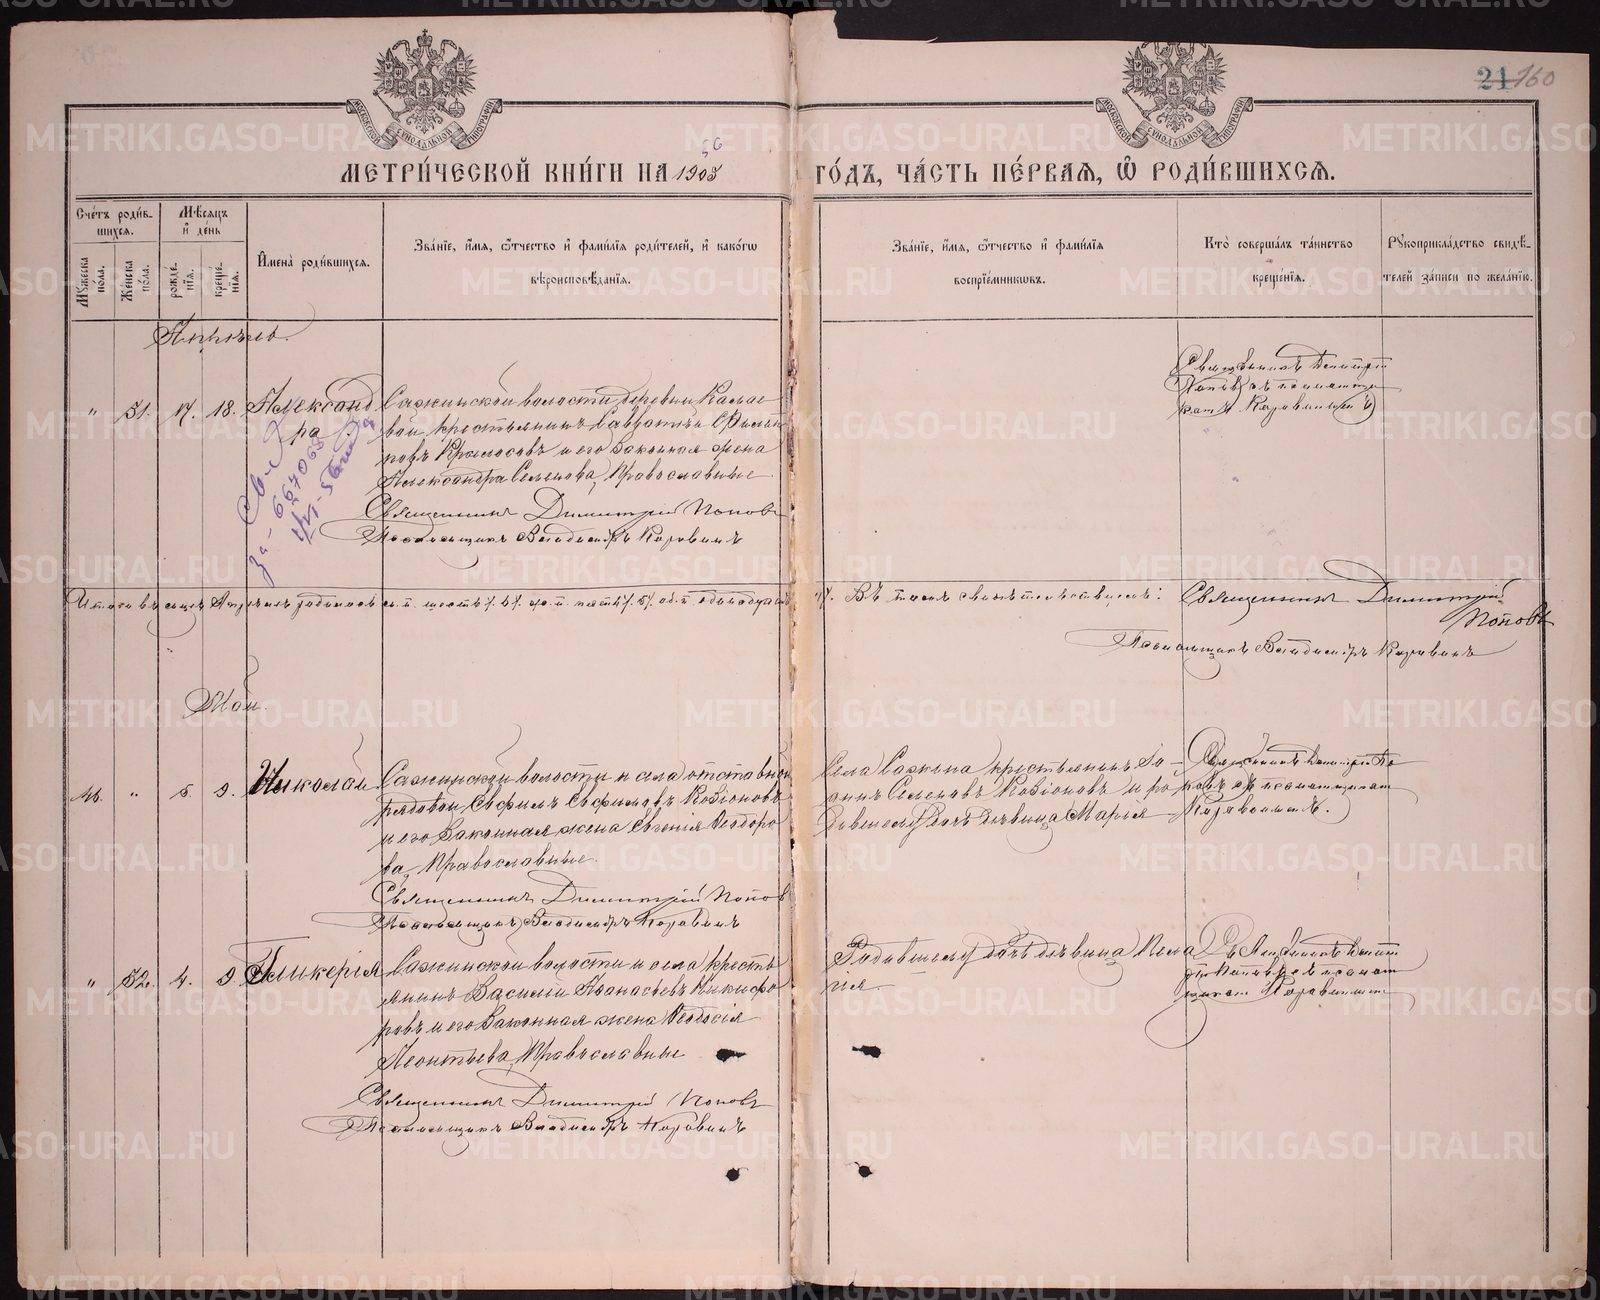 21 160
МЕТРИ́ЧЕСКОЙ КНИ́ГИ НА 1905 6 ГО́ДЪ, ЧА́СТЬ ПЕ́РВАЯ, Ѡ РОДИ́ВШИХСЯ.
Сче́тъ роди́в-
шихся.
Мѣ́сяцъ
и҆ де́нь
Мꙋ́жеска по́ла.
Же́нска по́ла.
рожде́-
нїѧ.
креще́-
нїѧ.
И҆мена̀ роди́вшихся.
Зва́нїе, и҆́мѧ, ѻ҆́тчество и҆ фами́лїѧ роди́телей, и҆ како́гѡ
вѣроисповѣ́данїѧ.
Зва́нїе, и҆́мѧ, ѻ҆́тчество и҆ фами́лїѧ
воспрїе́мниковъ.
Кто̀ соверша́лъ та́инство
креще́нїѧ.
Рꙋкоприкла́дство свидѣ́-
телей за́писи по жела́нїю.
Апрѣль.
" 31. 17. 18. Александ
ра
Сажинской волости деревни
вой крестьянинъ Савватій Филип
повъ и его законная жена
Александра Семенова, Православные
Священникъ Димитрій Поповъ
Псаломщикъ Владиміръ Коровинъ
Священникъ Димитрій
Поповъ съ псаломщи
комъ Коровинымъ
667068
Итого въ мѣсяцѣ Апрѣлѣ родилось м. п. шесть /6/ ж. п. пять /5/ об. п. одинадцать
Въ томъ свидѣтельствуемъ: Священникъ Димитрій
Поповъ
Псаломщикъ Владиміръ Коровинъ
Май.
" 9. Николай
Сажинской волости и села отставной
рядовой Евфимъ Евфимовъ
и его законная жена Евгенія Ѳеодоро
ва, Православные.
Священникъ Димитрій Поповъ
Псаломщикъ Владиміръ Коровинъ
Села Сажина крестьянинъ Іо-
аннъ Семеновъ и ро
дившему дочь дѣвица Марія
Священникъ Димитрій По
повъ съ псаломщикомъ
Коровинымъ.
" 32. 4. 9 Гликерія
Сажинской волости и села кресть
янинъ Василій Аѳанасьевъ Никифо
ровъ и его законная жена Ѳеодосія
Леонтьева, Православные
Священникъ Димитрій Поповъ
Псаломщикъ Владиміръ Коровинъ
Родившему дочь дѣвица Пела
гія.
Священникъ Димит
рій Поповъ съ псалом
щикомъ Коровинымъ
METRIKI.GASO-URAL.RU